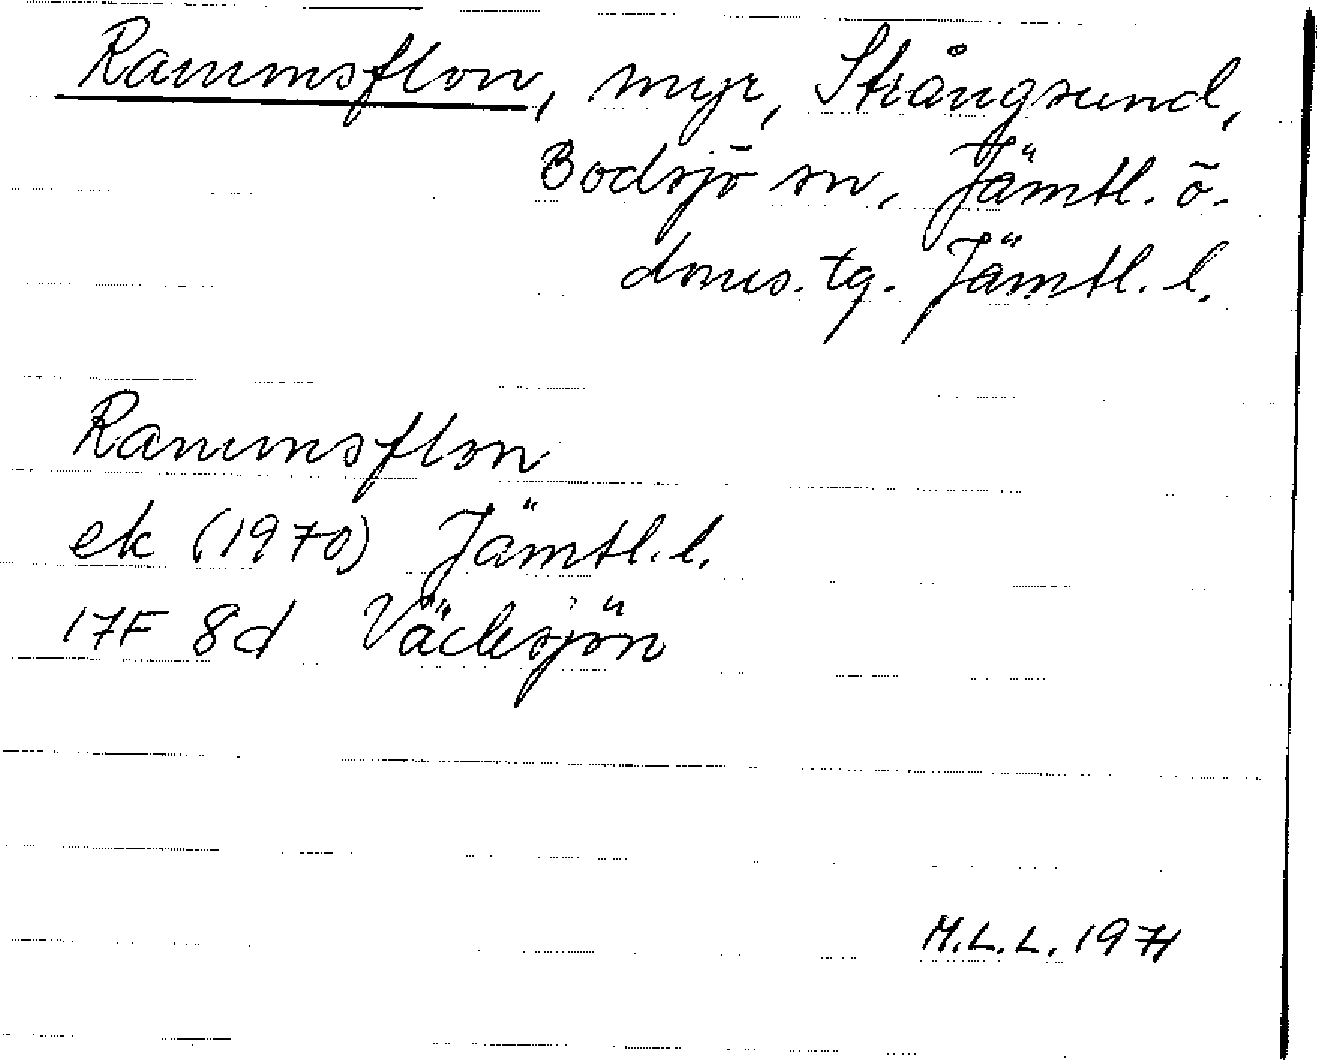 Rammsflon, myr, Strångsund,
Bodsjö sn, Jämtl. ö.
doms. tg. Jämtl. l.
Rammsflon
ek (1970) Jämtl. l.
17F 8d Väcksjön
M.L.L. 1971